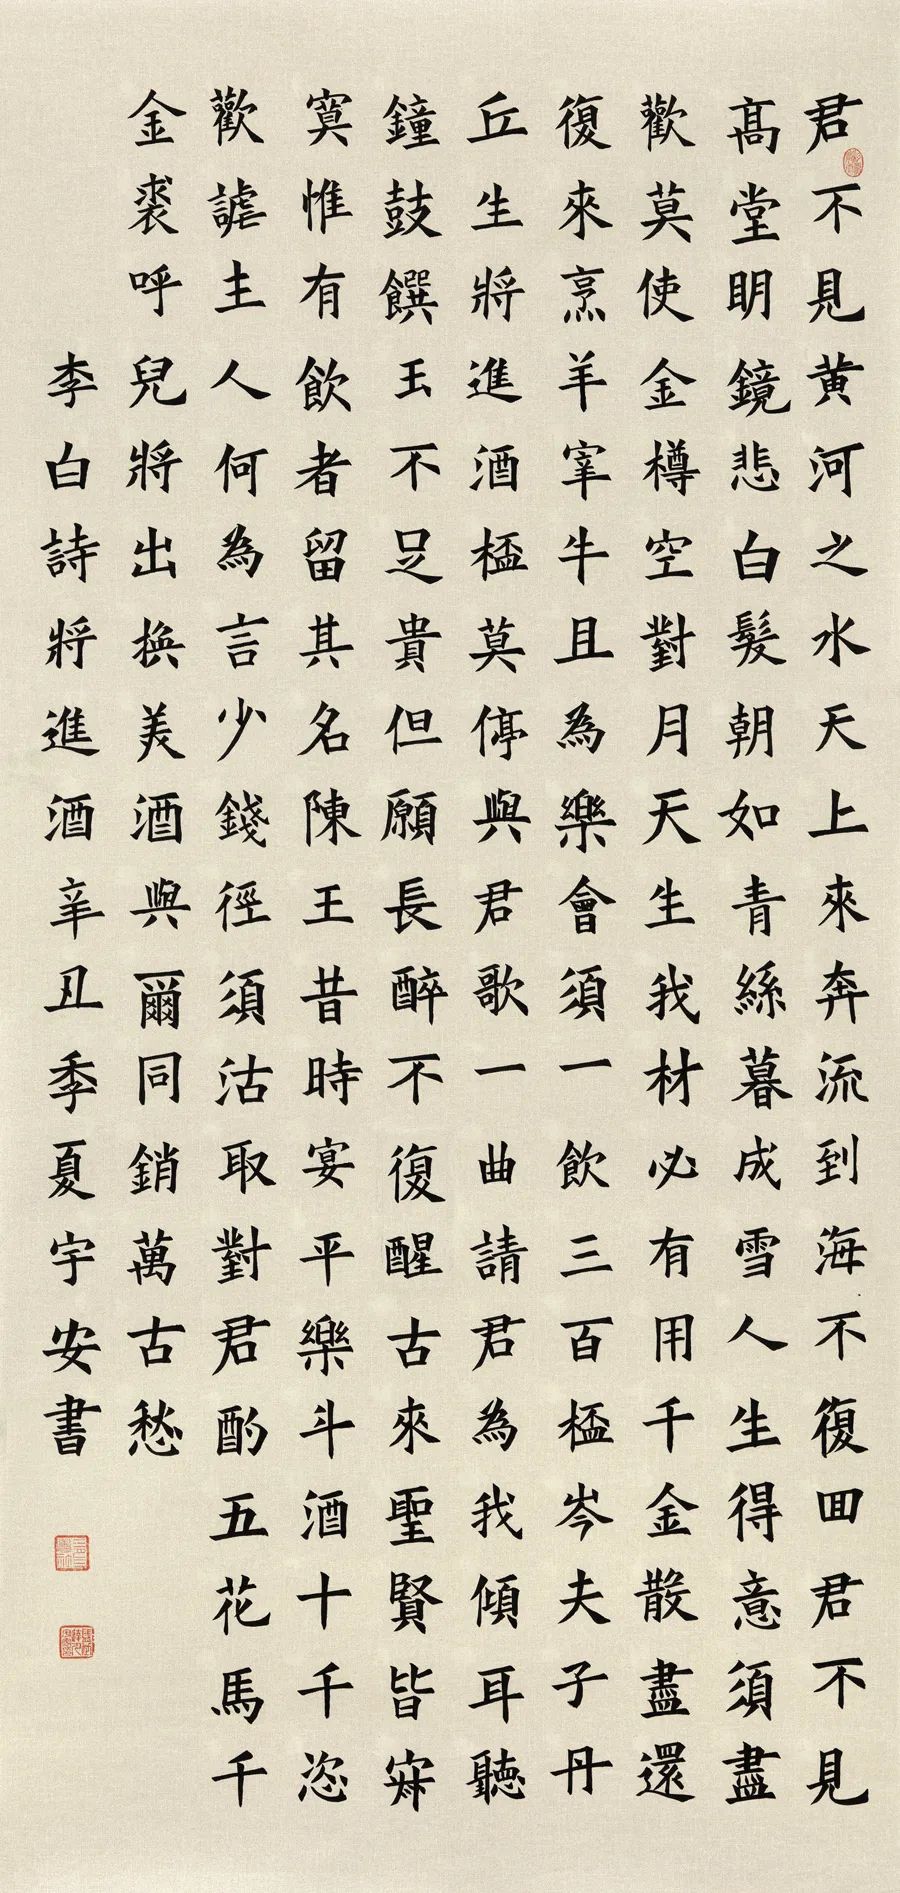 君不見黄河之水天上來奔流到海不復回君不見
髙堂明鏡悲白髮朝如青絲暮成雪人生得意須盡
歡莫使金樽空對月天生我材必有用千金散盡還
復來烹羊宰牛且為樂會須一飲三百桮岑夫子丹
丘生將進酒桮莫停與君歌一曲請君為我傾耳聽
鐘鼓饌玉不足貴但願長醉不復醒古來聖賢皆寂
寞惟有飲者留其名陳王昔時宴平樂斗酒十千恣
歡謔主人何為言少錢徑須沽取對君酌五花馬千
金裘呼兒將出換美酒與爾同銷萬古愁
李白詩將進酒辛丑季夏宇安書